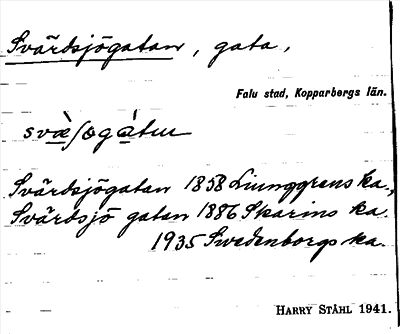 Svärdsjögatan, gata,
Falu stad, Kopparbergs län.
Svärdsjögatan 1858 Ljunggrens ka.,
Svärdsjö gatan 1886 Skarins ka.
1935 Swedenborgs ka.
HARRY STÅHL 1941.